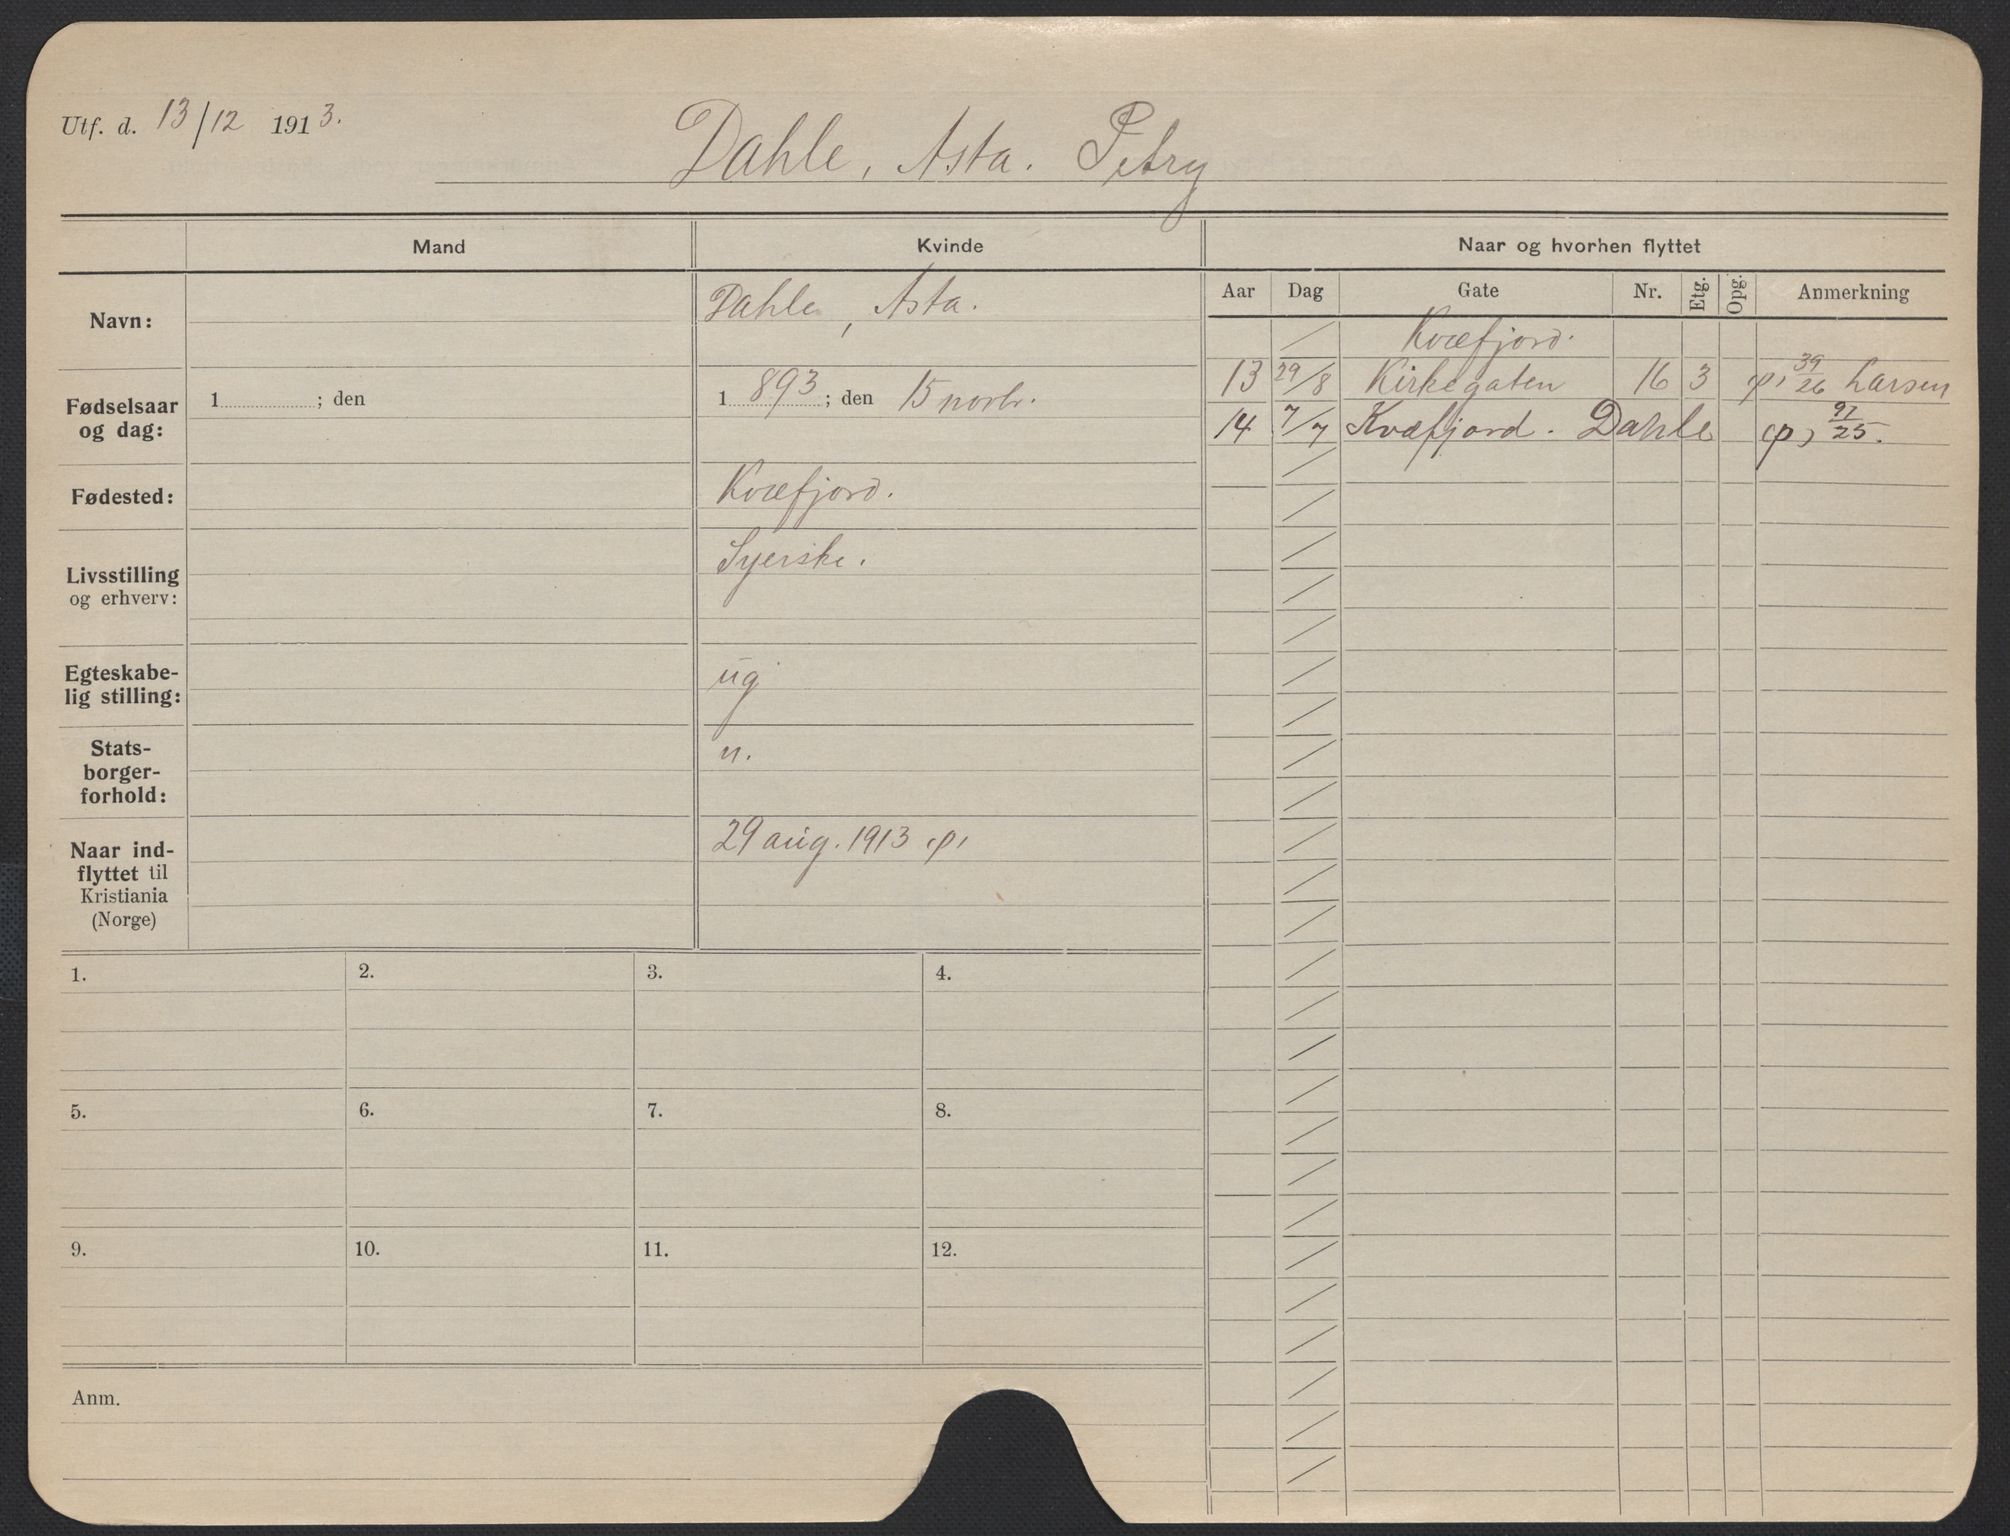 Utf. d. 13/12 1913.
Dahle, Asta. Petry
Mand
Kvinde
Naar og hvorhen flyttet
Aar Dag Gate Nr. Etg. Opg. Anmerkning
Navn:
Dahle, Asta.
Fødselsaar og dag:
1 ; den
1 893 ; den 15 novbr.
Fødested:
Kvæfjord.
Livsstilling
og erhverv:
Syerske.
Egteskabe-
lig stilling:
ug
Stats-
borger-
forhold:
n.
Naar ind-
flyttet til
Kristiania
(Norge)
29 aug. 1913 (p)
/ Kvæfjord.
13 29/8 Kirkegaten 16 3 (p) 39/26 Larsen
14 7/7 Kvæfjord. Dahle (p) 97/25.
1. 2. 3. 4.
5. 6. 7. 8.
9. 10. 11. 12.
Anm.